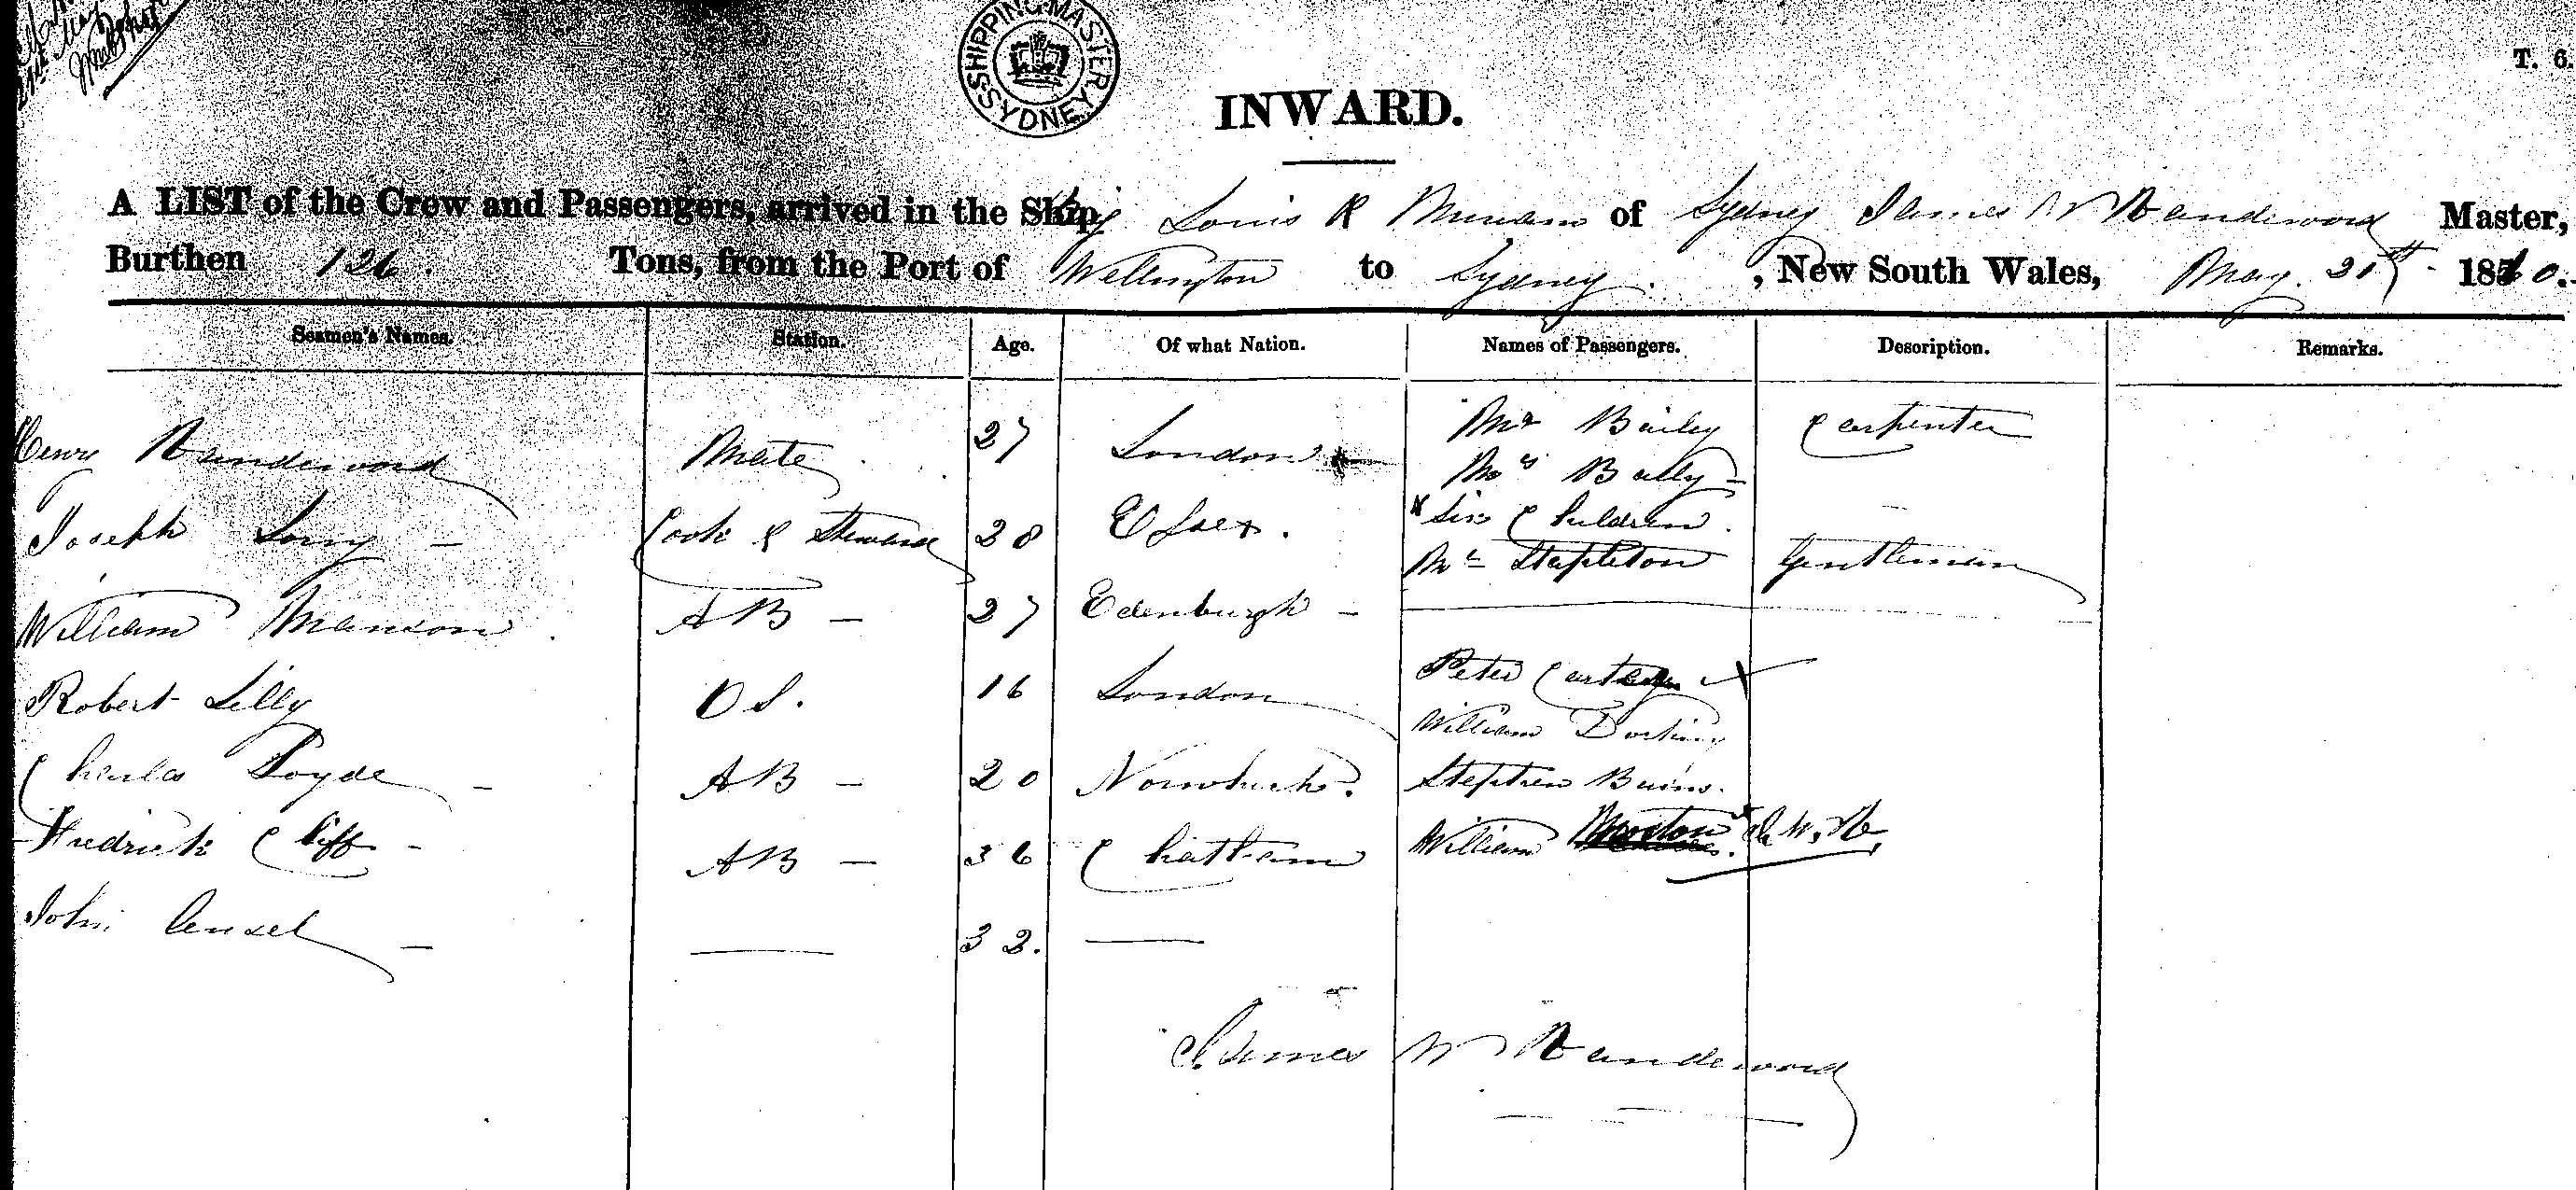 SHIPPING MASTER SYDNEY
T. 6.
INWARD.
A LIST of the Crew and Passengers, arrived in the Ship Louis & Miriam of Sydney James W Vandervord Master,
Burthen 126. Tons, from the Port of Wellington to Sydney. , New South Wales, May. 21st 1870.
Seamen's Names. Station. Age. Of what Nation. Names of Passengers. Description. Remarks.
Henry Vandervord Mate 27 London Mr Bailey Carpenter
Mrs Bailly
Joseph Long Cook & Steward 28 Essex. Six Children.
Mr Stapleton Gentleman
William Manson AB 27 Edenburgh
Robert Lilly OS. 16 London Peter
William
Charles Loyde AB 20 Stephen Burns.
Fredrick Cliff AB 36 Chatham William Morton J. W. V.
John 32.
James W Vandervord